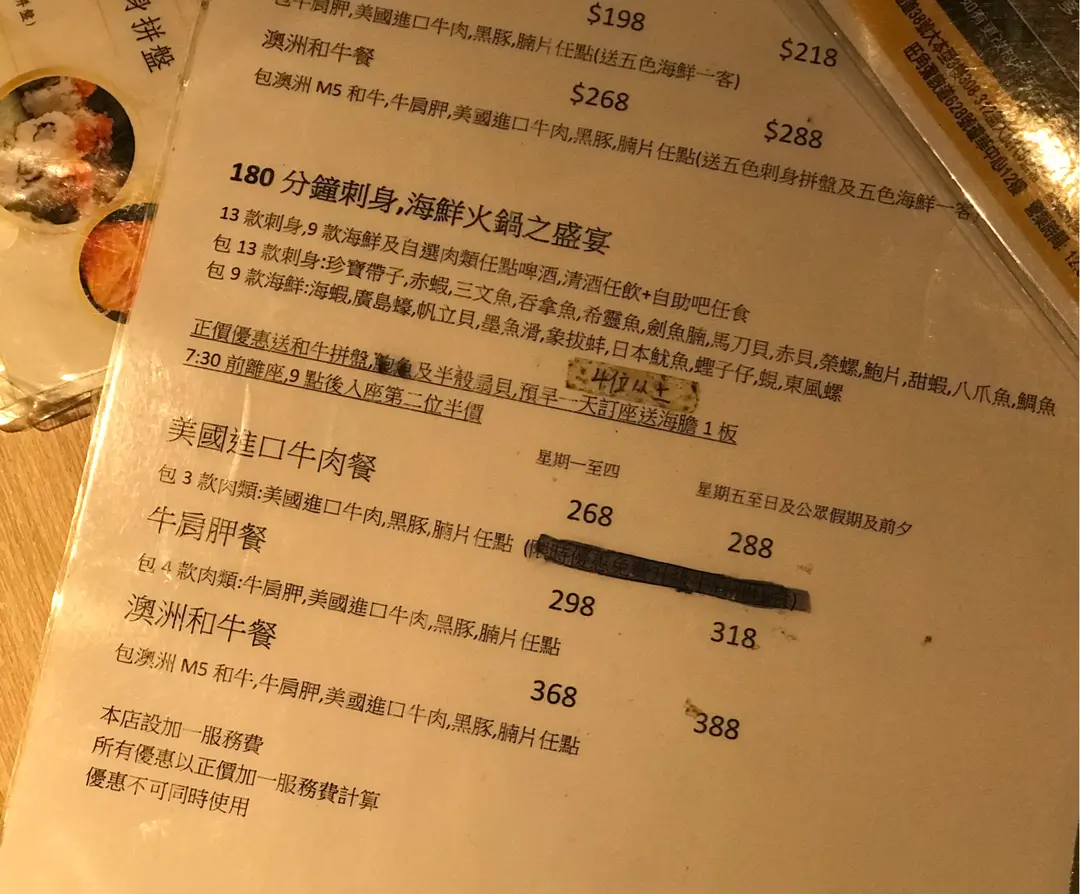 身拼盤
包牛肩胛,美國進口牛肉,黑豚,腩片任點(送五色海鮮一客)
$198
$218
澳洲和牛餐
$268
$288
包澳洲 M5 和牛,牛肩胛,美國進口牛肉,黑豚,腩片任點(送五色刺身拼盤及五色海鮮一客
180 分鐘刺身,海鮮火鍋之盛宴
13 款刺身,9 款海鮮及自選肉類任點啤酒,清酒任飲+自助吧任食
包 13 款刺身:珍寶帶子,赤蝦,三文魚,吞拿魚,希靈魚,劍魚腩,馬刀貝,赤貝,榮螺,鮑片,甜蝦,八爪魚,鯛魚
包 9 款海鮮:海蝦,廣島蠔,帆立貝,墨魚滑,象拔蚌,日本魷魚,蟶子仔,蜆,東風螺
4位以上
正價優惠送和牛拼盤,及半殼扇貝,預早一天訂座送海膽 1 板
7:30 前離座,9 點後入座第二位半價
星期一至四
星期五至日及公眾假期及前夕
美國進口牛肉餐
268
288
包 3 款肉類:美國進口牛肉,黑豚,腩片任點
牛肩胛餐
298
318
包 4 款肉類:牛肩胛,美國進口牛肉,黑豚,腩片任點
澳洲和牛餐
368
388
包澳洲 M5 和牛,牛肩胛,美國進口牛肉,黑豚,腩片任點
本店設加一服務費
所有優惠以正價加一服務費計算
優惠不可同時使用